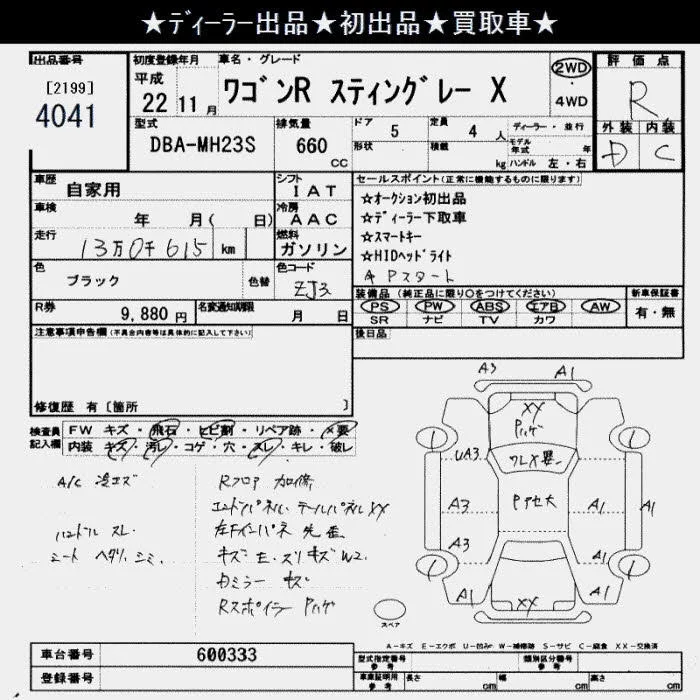 ★ディーラー出品★初出品★買取車★
出品番号
[2199]
4041
初度登録年月
平成
22 11月
車名・グレード
ワゴンR スティングレー X
2WD
・
4WD
評価点
R
外装 内装
D C
型式
DBA-MH23S
排気量
660
CC
ドア 5
形状
定員 4人
積載 kg
ディーラー・並行
モデル年式 年
ハンドル 左・右
車歴
自家用
シフト
IAT
車検
年 月( 日)
冷房
AAC
走行
13万0千615 km
燃料
ガソリン
色
ブラック
色替
色コード
ZJ3
R券
9,880円
名変通知期限
月 日
セールスポイント(正常に機能するものに限ります)
★オークション初出品
★ディーラー下取車
★スマートキー
★HIDヘッドライト
Pスタート
装備品(純正品に限り○をつけてください)
PS PW ABS エアB AW
SR ナビ TV カワ
新車保証書
有・無
後日品
注意事項申告欄(不具合内容等は具体的に記入して下さい)
修復歴 有〔箇所 〕
検査員記入欄
FW キズ・飛石・ヒビ割・リペア跡・×要
内装 キズ・汚レ・コゲ・穴・スレ・キレ・破レ
A/C
ハンドル スレ
シート ヘタリ、シミ
Rフロア 加修
エンドパネル・テールパネルXX
キズ E・スリキズW2.
カミラー キズ
Rスポイラー Pハゲ
A3
A1
XX
Pハゲ
UA3
ワレX要
A1
A3
Pアセ大
A1
A1
A3
A1
XX
A1
スペア
A-キズ E-エクボ U-凹み W-補修跡 S-サビ C-腐食 XX-交換済
車台番号
600333
登録番号
型式指定番号
参考
類別区分番号
参考
車庫証明用
参考
長さ cm
幅 cm
高さ cm